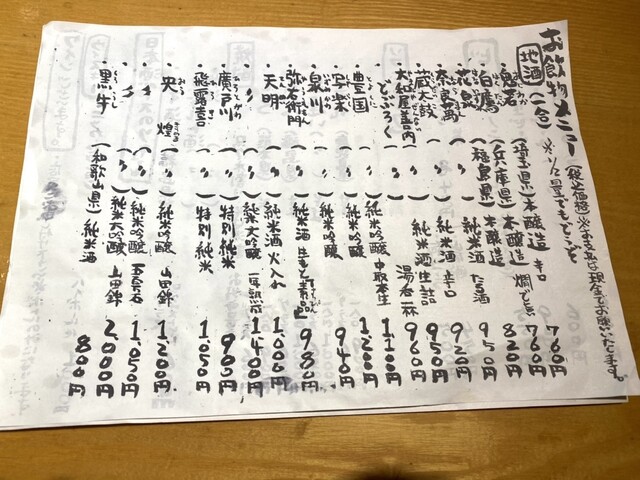 お飲物メニュー(税込価格)※お支払は現金でお願いたします。
地酒(一合) ※1/2量でもどうぞ
(埼玉県)本醸造 辛口 760円
白鷹(兵庫県)本醸造 燗で 760円
(福島県)本醸造 820円
〃 純米酒 たる酒 950円
〃 純米酒 辛口 920円
蔵太鼓(〃)純米酒 生詰 950円
大紅屋善内(〃) 960円
どぶろく 1,100円
豊国(〃)純米吟醸 中取本生 1,200円
写楽(〃)純米吟醸 940円
泉川(〃)純米吟醸
弥右衛門(〃)純米酒 生もと 980円
天明(〃)純米酒 火入れ 1,000円
〃(〃)純米大吟醸 一年熟成 1,400円
廣戸川(〃)特別純米 900円
飛露喜(〃)特別純米 1,050円
央(〃)純米吟醸 山田錦 1,200円
〃(〃)純米吟醸 五百万石 1,050円
〃(〃)純米大吟醸 山田錦 2,000円
黒牛(和歌山県)純米酒 800円